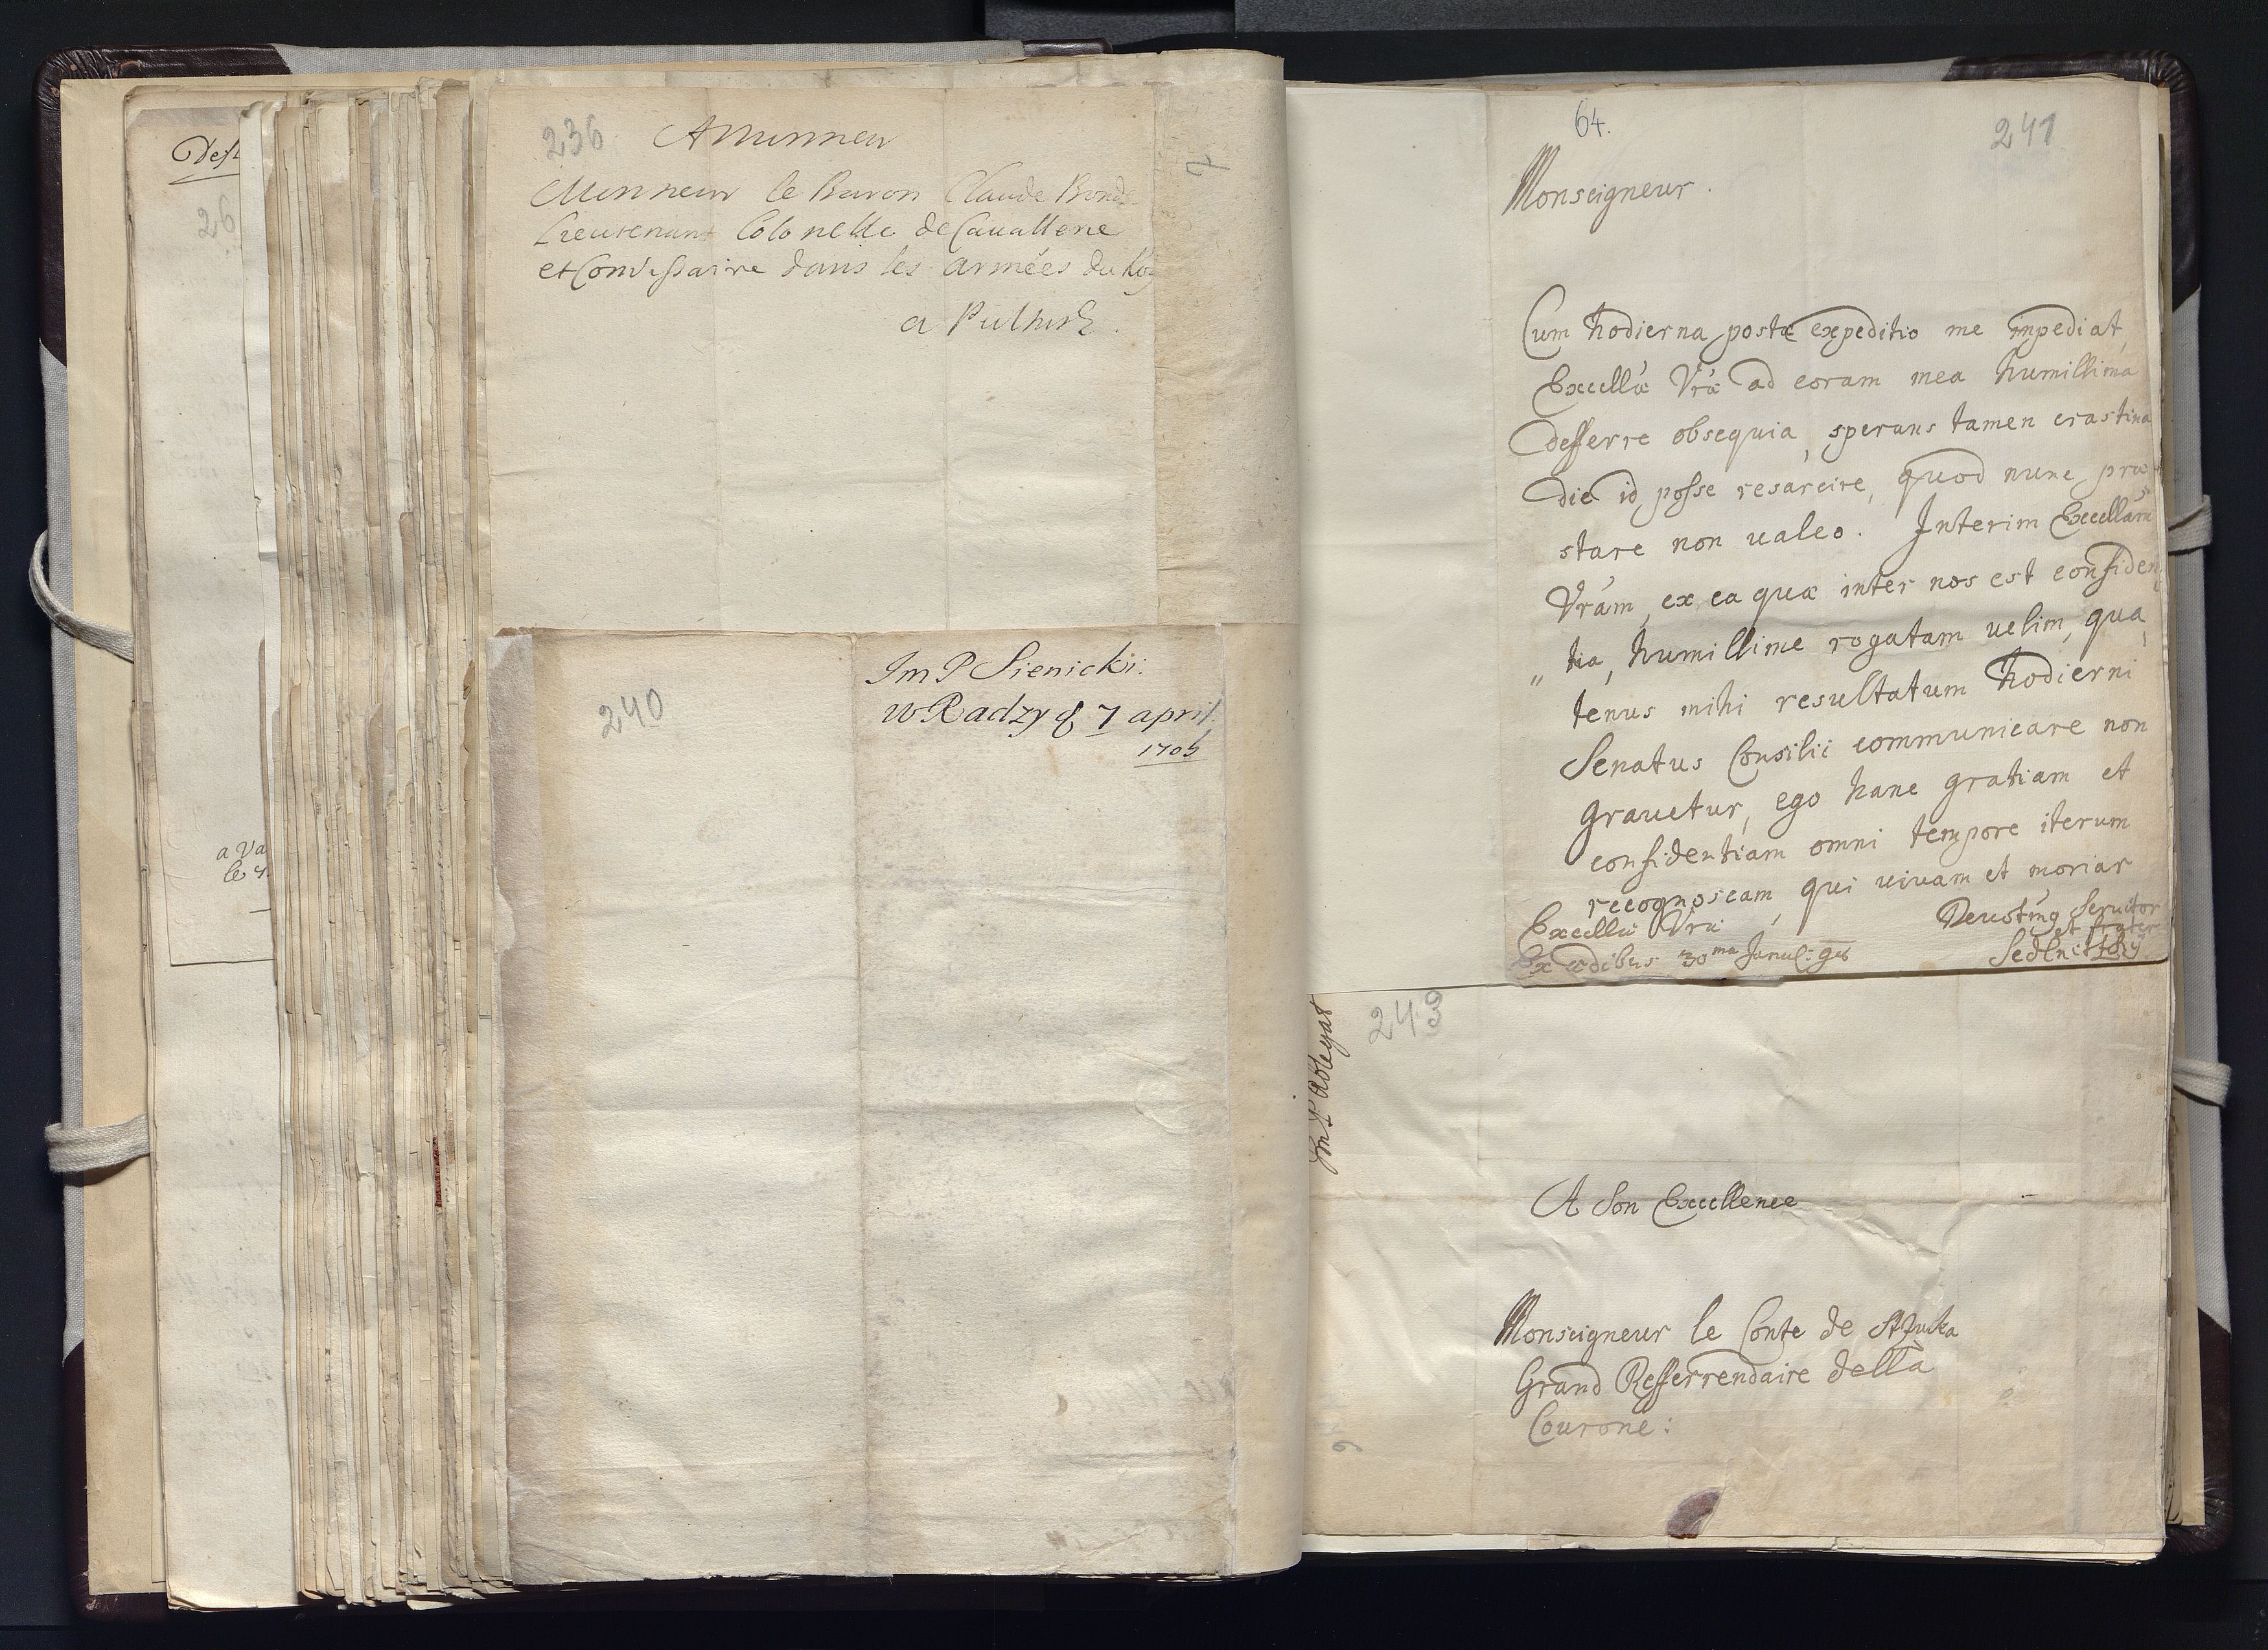 Dest
26
a Va
le
236
A Monsieur
Monsieur le Baron Claude Bonde
Lieutenant Colonelle de Cauallerie
et Comissaire dans les Armées du Roy
a Pultusk.
7
240
Jm P Sienicki:
w Radzy d 7 april
1705
64.
241
Monseigneur.
Cum hodierna postæ expeditio me impediat,
Excellæ Vræ ad coram mea humillima
defferre obsequia, sperans tamen crastina
die id posse resarcire, quod nunc præ
stare non ualeo. Interim Excellam
Vram, ex ea quæ inter nos est confiden
„ tia, humillime rogatam uelim, qua
tenus mihi resultatum hodierni
Senatus Consilii communicare non
grauetur, ego hanc gratiam et
confidentiam omni tempore iterum
recognoscam, qui uiuam et moriar
Excellæ Vræ
Deuotmg Seruitor
et frater
Ex ædibus 30ma
Sedlnitzky
243
Jm P Ablegat
A Son Excellence
Monseigneur le Conte de Szuka
Grand Refferrendaire della
Courone: